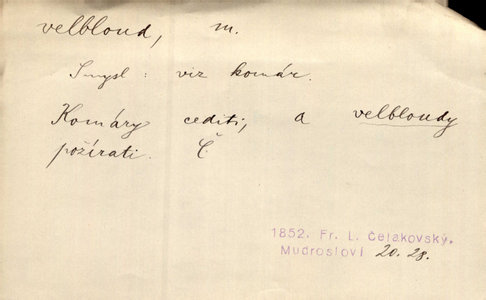 velbloud, m.
Smysl: viz komár.
Komáry cediti, a velbloudy
požírati. Č.
1852. Fr. L. Čelakovský,
Mudrosloví 20.28.